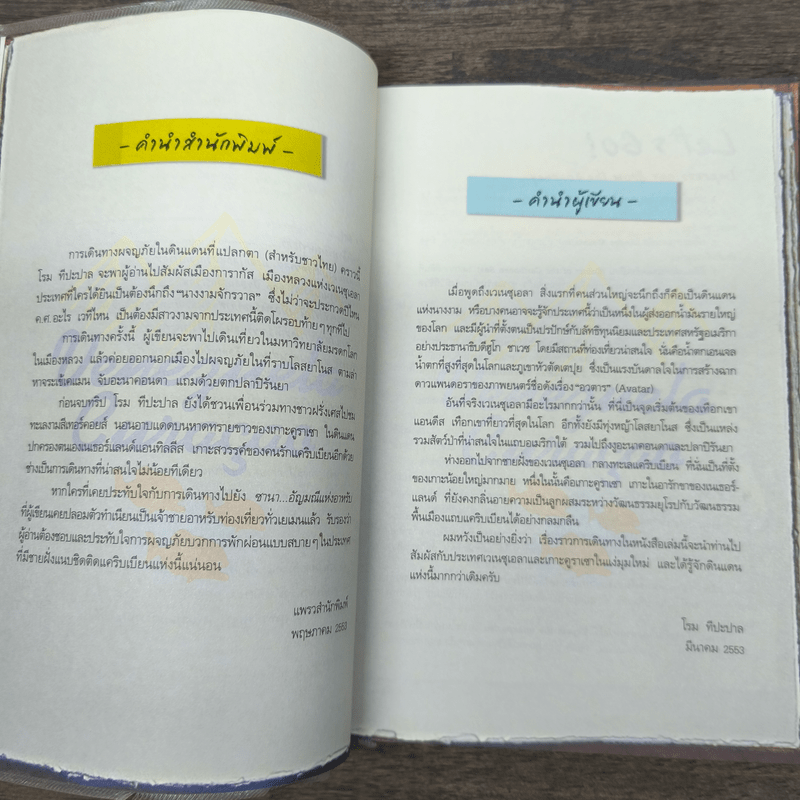 - คำนำสำนักพิมพ์ -
การเดินทางผจญภัยในดินแดนที่แปลกตา (สำหรับชาวไทย) คราวนี้
โรม ทีปะปาล จะพาผู้อ่านไปสัมผัสเมืองการากัส เมืองหลวงแห่งเวเนซุเอลา
ประเทศที่ใครได้ยินเป็นต้องนึกถึง “นางงามจักรวาล” ซึ่งไม่ว่าจะประกวดปีไหน
ค.ศ.อะไร เวทีไหน เป็นต้องมีสาวงามจากประเทศนี้ติดโผรอบท้ายๆ ทุกทีไป
การเดินทางครั้งนี้ ผู้เขียนจะพาไปเดินเที่ยวในมหาวิทยาลัยมรดกโลก
ในเมืองหลวง แล้วค่อยออกนอกเมืองไปผจญภัยในที่ราบโลสยาโนส ตามล่า
หาจระเข้เคแมน จับอะนาคอนดา แถมด้วยตกปลาปิรันยา
ก่อนจบทริป โรม ทีปะปาล ยังได้ชวนเพื่อนร่วมทางชาวฝรั่งเศสไปชม
ทะเลงามสีเทอร์คอยส์ นอนอาบแดดบนหาดทรายขาวของเกาะคูราเซา ในดินแดน
ปกครองตนเองเนเธอร์แลนด์แอนทิลลีส เกาะสวรรค์ของคนรักแคริบเบียนอีกด้วย
ช่างเป็นการเดินทางที่น่าสนใจไม่น้อยทีเดียว
หากใครที่เคยประทับใจกับการเดินทางไปยัง ซานา...อัญมณีแห่งอาหรับ
ที่ผู้เขียนเคยปลอมตัวทำเนียนเป็นเจ้าชายอาหรับท่องเที่ยวทั่วเยเมนแล้ว รับรองว่า
ผู้อ่านต้องชอบและประทับใจการผจญภัยบวกการพักผ่อนแบบสบายๆ ในประเทศ
ที่มีชายฝั่งแนบชิดติดแคริบเบียนแห่งนี้แน่นอน
แพรวสำนักพิมพ์
พฤษภาคม 2553
- คำนำผู้เขียน -
เมื่อพูดถึงเวเนซุเอลา สิ่งแรกที่คนส่วนใหญ่จะนึกถึงก็คือเป็นดินแดน
แห่งนางงาม หรือบางคนอาจจะรู้จักประเทศนี้ว่าเป็นหนึ่งในผู้ส่งออกน้ำมันรายใหญ่
ของโลก และมีผู้นำที่ตั้งตนเป็นปรปักษ์กับลัทธิทุนนิยมและประเทศสหรัฐอเมริกา
อย่างประธานาธิบดีฮูโก ชาเวซ โดยมีสถานที่ท่องเที่ยวน่าสนใจ นั่นคือน้ำตกเอนเจล
น้ำตกที่สูงที่สุดในโลกและภูเขาหัวตัดเตปุย ซึ่งเป็นแรงบันดาลใจในการสร้างฉาก
ดาวแพนดอราของภาพยนตร์ชื่อดังเรื่อง “อวตาร” (Avatar)
อันที่จริงเวเนซุเอลามีอะไรมากกว่านั้น ที่นี่เป็นจุดเริ่มต้นของเทือกเขา
แอนดีส เทือกเขาที่ยาวที่สุดในโลก อีกทั้งยังมีทุ่งหญ้าโลสยาโนส ซึ่งเป็นแหล่ง
รวมสัตว์ป่าที่น่าสนใจในแถบอเมริกาใต้ รวมไปถึงงูอะนาคอนดาและปลาปิรันยา
ห่างออกไปจากชายฝั่งของเวเนซุเอลา กลางทะเลแคริบเบียน ที่นั่นเป็นที่ตั้ง
ของเกาะน้อยใหญ่มากมาย หนึ่งในนั้นคือเกาะคูราเซา เกาะในอารักขาของเนเธอร์-
แลนด์ ที่ยังคงกลิ่นอายความเป็นลูกผสมระหว่างวัฒนธรรมยุโรปกับวัฒนธรรม
พื้นเมืองแถบแคริบเบียนได้อย่างกลมกลืน
ผมหวังเป็นอย่างยิ่งว่า เรื่องราวการเดินทางในหนังสือเล่มนี้จะนำท่านไป
สัมผัสกับประเทศเวเนซุเอลาและเกาะคูราเซาในแง่มุมใหม่ และได้รู้จักดินแดน
แห่งนี้มากกว่าเดิมครับ
โรม ทีปะปาล
มีนาคม 2553